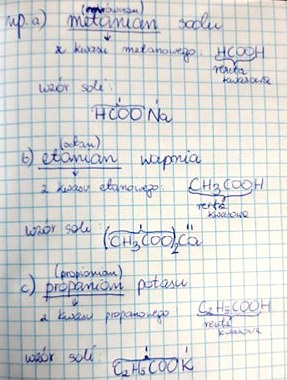 (mrówczan)
np. a) metanian sodu
z kwasu metanowego: HCOOH
reszta
kwasowa
wzór soli:
I I
HCOONa
(octan)
b) etanian wapnia
z kwasu etanowego: CH3COOH
reszta
kwasowa
wzór soli: I II
(CH3COO)2Ca
(propionian)
c) propanian potasu
z kwasu propanowego C2H5COOH
reszta
kwasowa
wzór soli: I I
C2H5COOK